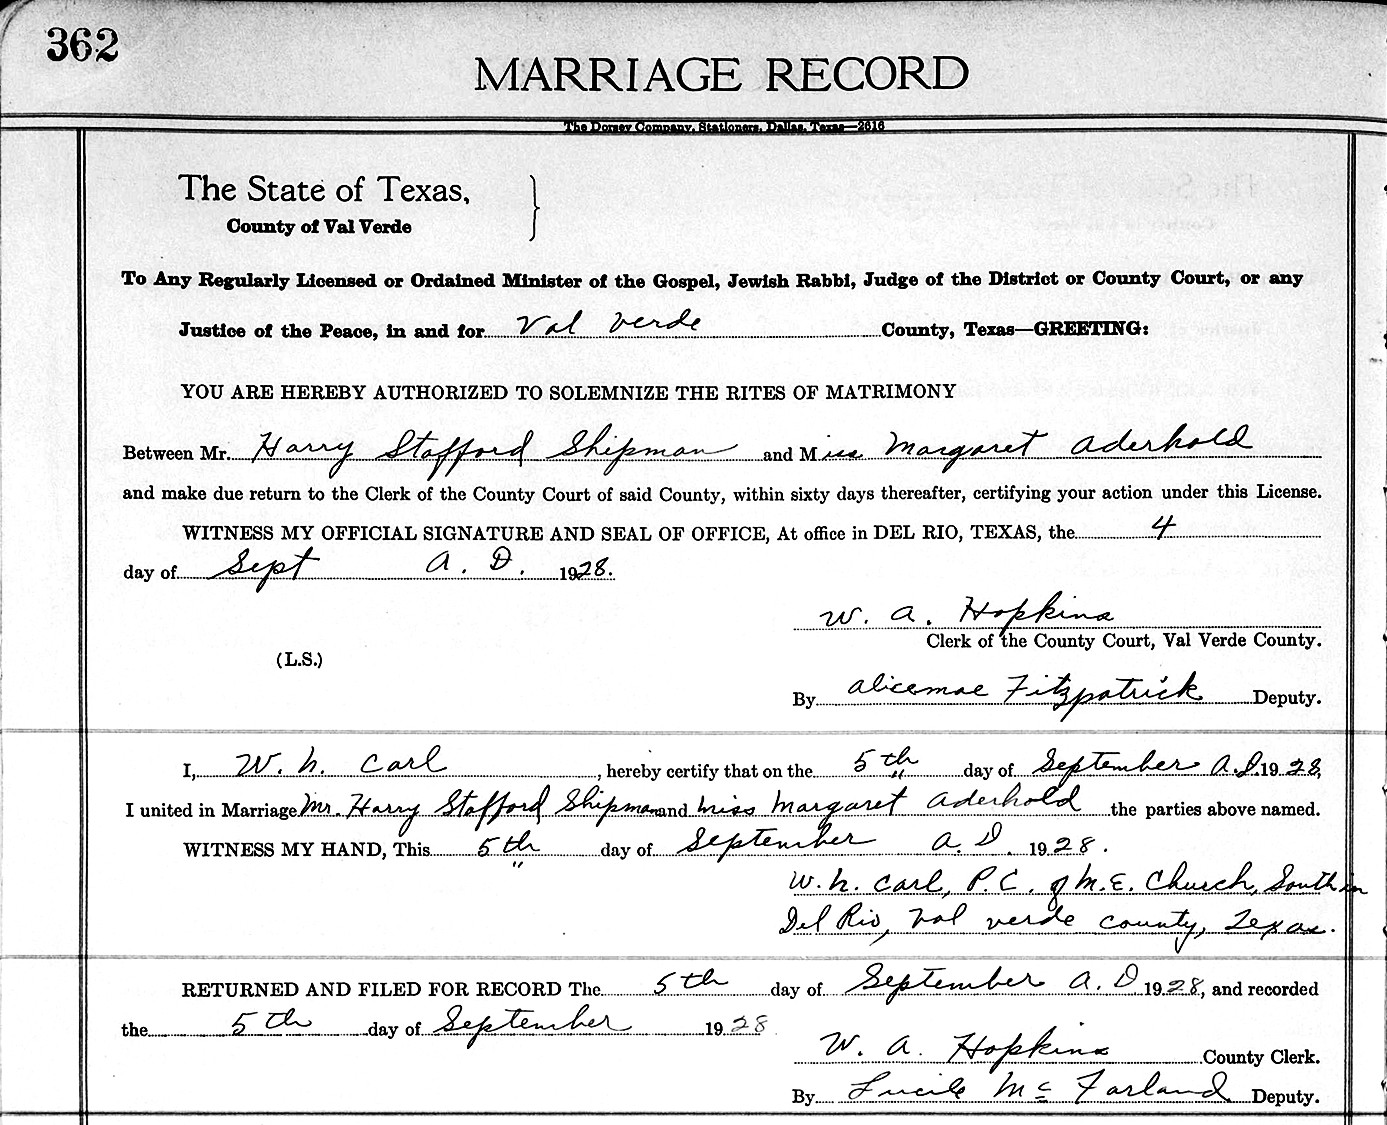 362
MARRIAGE RECORD
The Dorsey Company, Stationers, Dallas, Texas—2616
The State of Texas,
County of Val Verde
To Any Regularly Licensed or Ordained Minister of the Gospel, Jewish Rabbi, Judge of the District or County Court, or any
Justice of the Peace, in and for Val Verde County, Texas—GREETING:
YOU ARE HEREBY AUTHORIZED TO SOLEMNIZE THE RITES OF MATRIMONY
Between Mr. Harry Stafford Shipman and Miss Margaret Aderhold
and make due return to the Clerk of the County Court of said County, within sixty days thereafter, certifying your action under this License.
WITNESS MY OFFICIAL SIGNATURE AND SEAL OF OFFICE, At office in DEL RIO, TEXAS, the 4
day of Sept A. D. 1928.
W. A. Hopkins
Clerk of the County Court, Val Verde County.
(L.S.)
By Alicemae Fitzpatrick Deputy.
I, W. H. Carl, hereby certify that on the 5th day of September A.D. 1928,
I united in Marriage Mr. Harry Stafford Shipman and Miss Margaret Aderhold the parties above named.
WITNESS MY HAND, This 5th day of September A. D. 1928.
W. H. Carl, P.C. of M.E. Church, South in
Del Rio, Val Verde County, Texas.
RETURNED AND FILED FOR RECORD The 5th day of September A. D 1928, and recorded
the 5th day of September 1928
W. A. Hopkins County Clerk.
By Lucile McFarland Deputy.